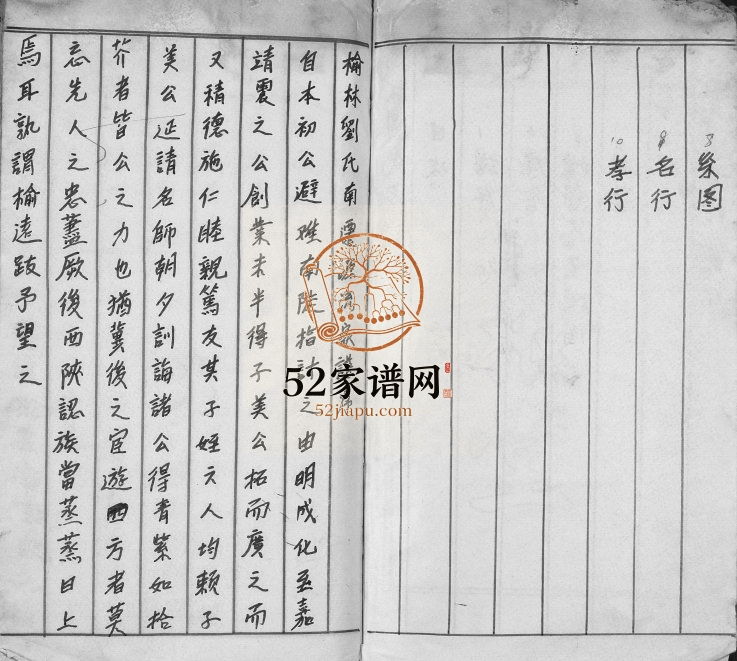 8 系图
9 名行
10 孝行
榆林劉氏南遷源流家譜
自本初公避難南陡指計之由明成化至嘉
靖震之公創業未半得子美公拓而廣之而
又積德施仁睦親篤友其子姪六人均賴子
美公延請名師朝夕訓誨諸公得青紫如拾
芥者皆公之力也猶冀後之宦遊四方者莫
忘先人之忠藎厥後西陝認族當蒸蒸日上
焉耳孰謂榆遠跂予望之
52家谱网
52jiapu.com